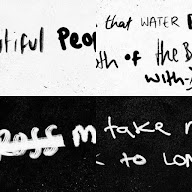 tiful Peo
that WATER
th of the B
with-
ross M
take
to LON